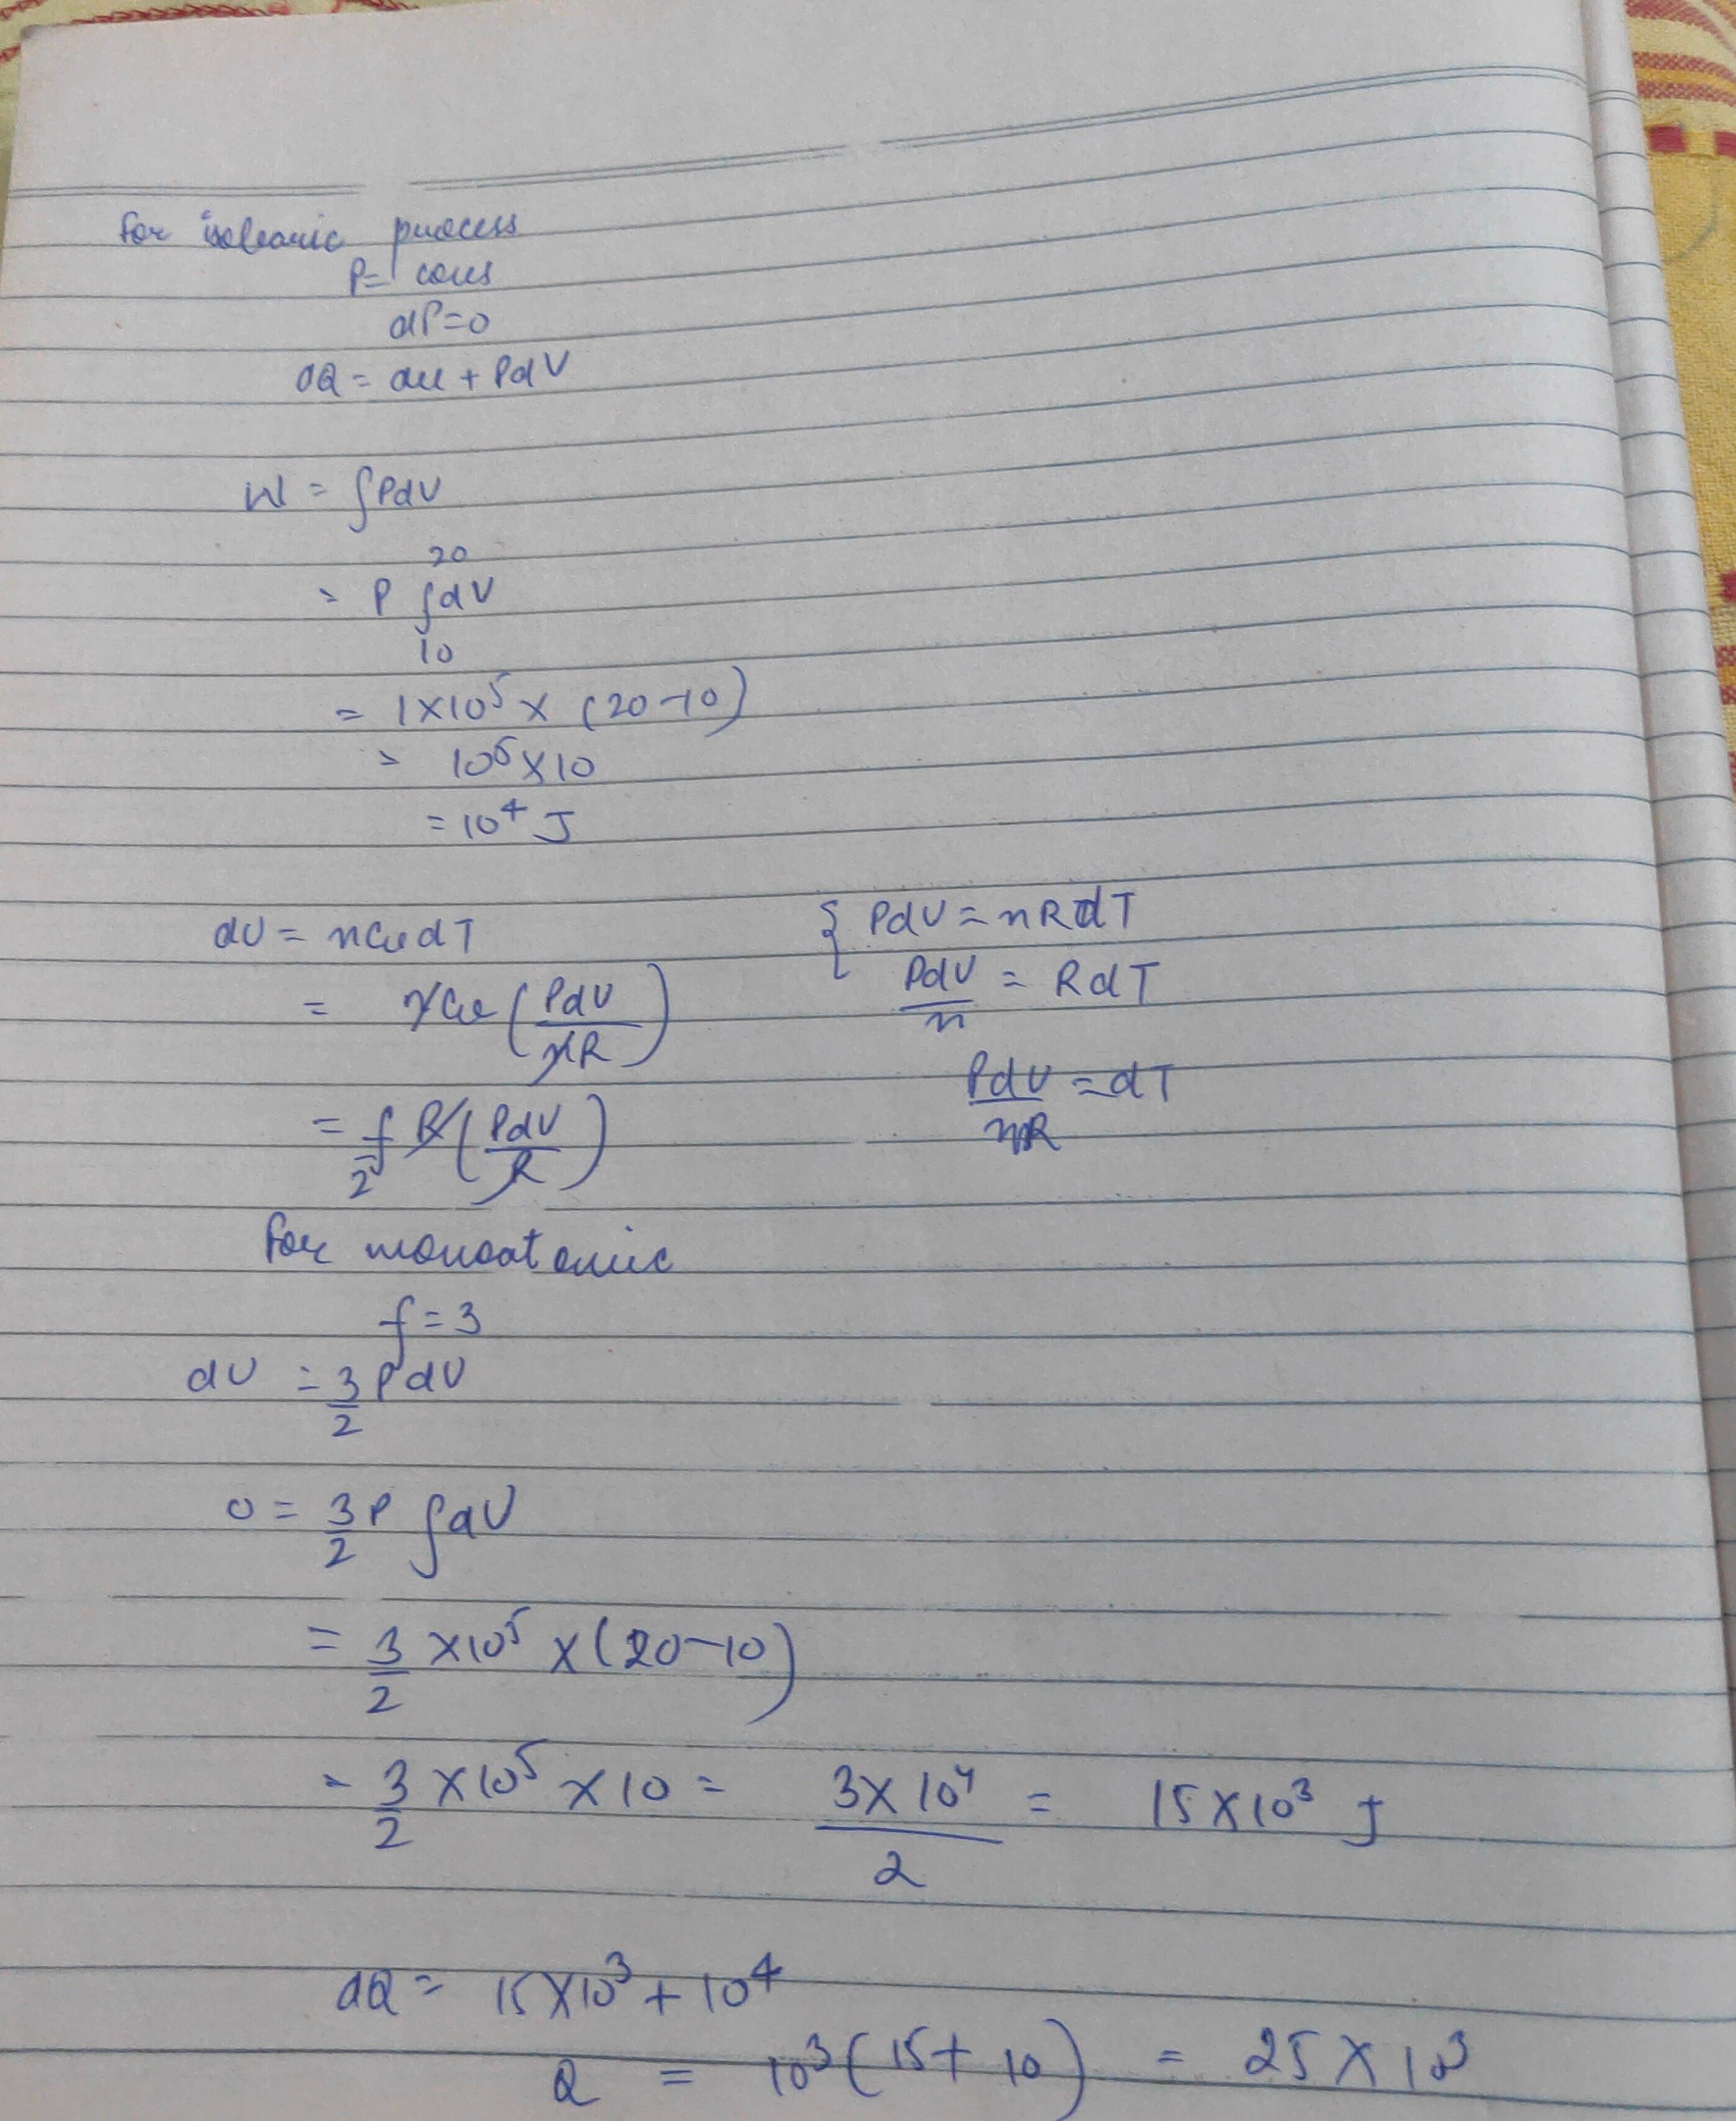 for isobaric process
P= cons
dP=0
dQ = du + PdV
W = ∫PdV
= P ∫₁₀²⁰ dV
= 1×10⁵ × (20-10)
= 10⁵×10
= 10⁴ J
dU = nCvdT { PdV = nRdT
= nCv (PdV/nR) PdV/n = RdT
PdV/nR = dT
= f/2 R (PdV/R)
for monoatomic
f=3
dU = 3/2 PdV
U = 3/2 P ∫dV
= 3/2 ×10⁵ ×(20-10)
= 3/2 ×10⁵ ×10 = 3×10⁴/2 = 15×10³ J
dQ = 15×10³ + 10⁴
Q = 10³(15+10) = 25×10³